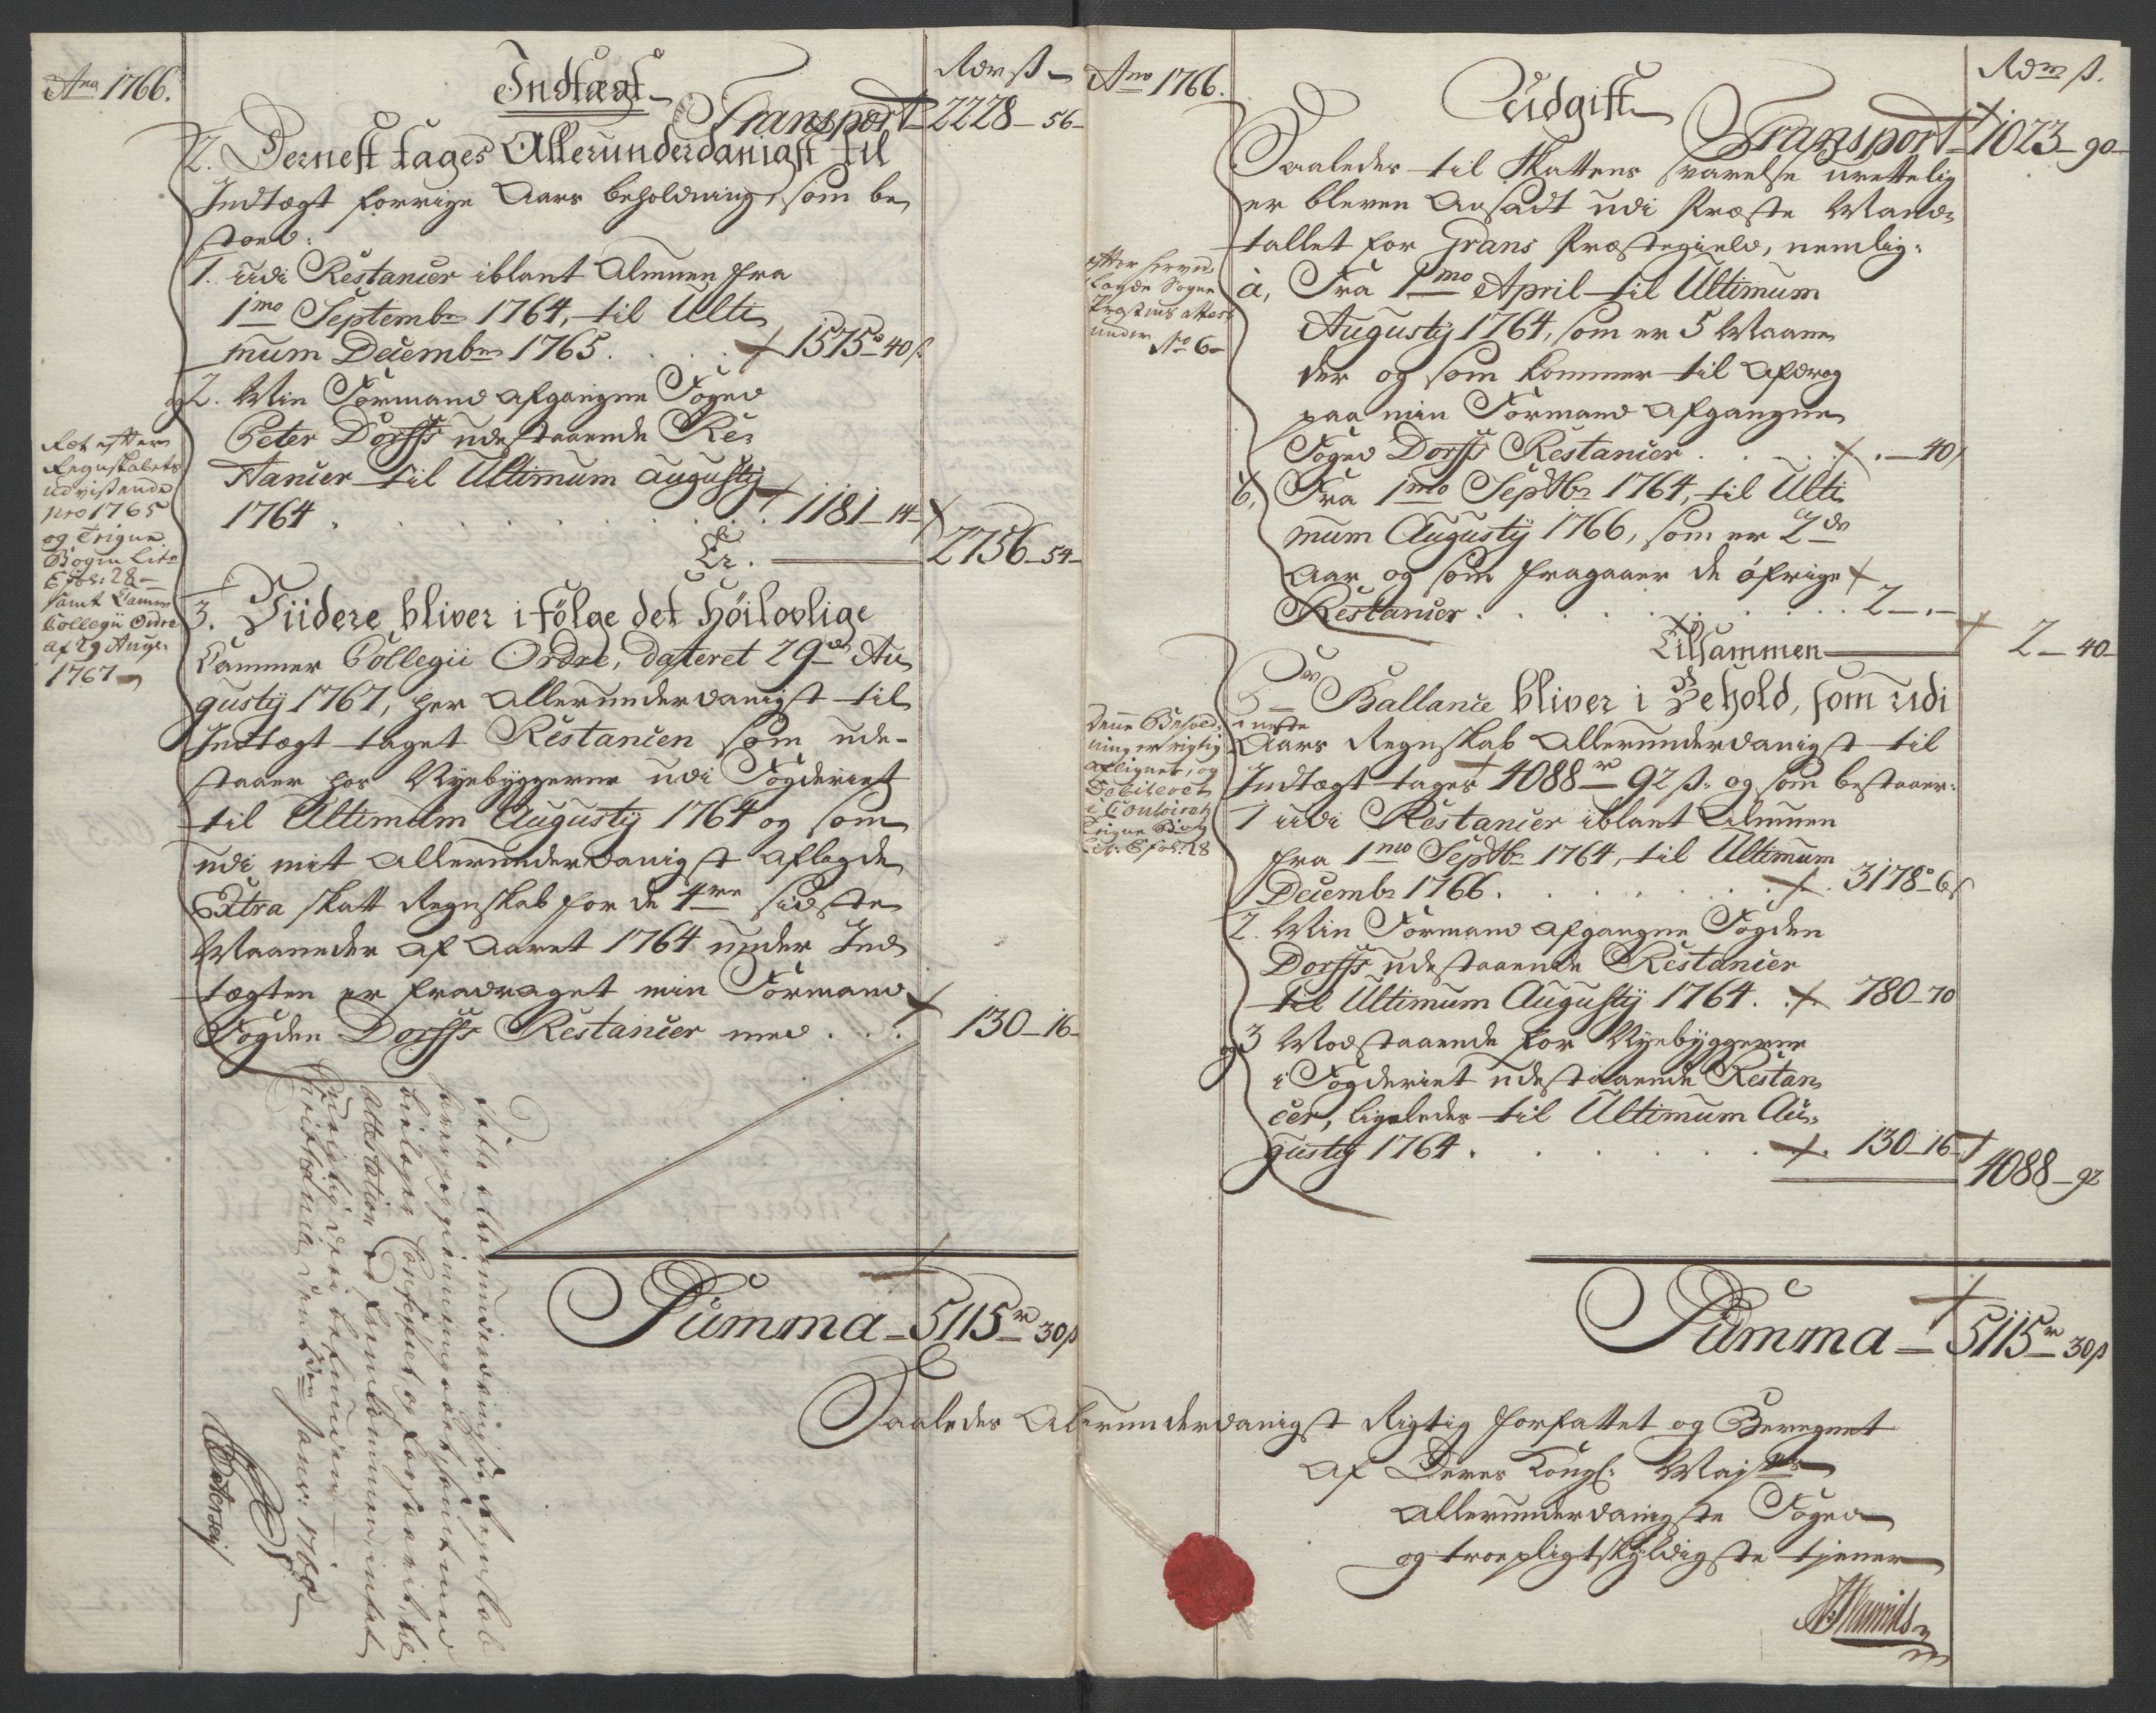 Ano 1766.
Indtægt
Rdr ß
Transport 2228 - 56 -
2. Dernest tages Allerunderdanigst til
Indtægt forrige Aars beholdning, som be
stoed:
1. udi Restancer iblant Almuen fra
1mo Septembr 1764, til Ulti
mum Decembr 1765 . . . . 1575 - 40 ß
og 2. Min Formand afgangne Foged
Peter Dorffs udestaaende Re
stancer til Ultimum Augustij
1764 . . . . . . . . 1181 - 14 -
Er. 2756 - 54 -
Ret efter
Regnskabets
udvisende
pro 1765
og Erigne
Bogen Litr
E fol: 28
samt Cammer
Collegii Ordre
af 29 Aug:
1767
3. Viidere bliver i følge det høilovlige
Cammer Collegii Ordre, dateret 29de Au
gustij 1767, her Allerunderdanigst til
Indtægt taget Restancen som ude-
staaer hos Nyebyggerne udi Fogderiet
til Ultimum Augustij 1764 og som
udi mit Allerunderdanigst aflagde
Extra skatt Regnskab for de 4re sidste
Maaneder af Aaret 1764 under Ind
tægten er fradraget min Formand
Fogden Dorffs Restancer med . . . 130 - 16 -
Summa 5115r 30 ß
Dette allerunderdanigste Regnskab
bielager Confereret, og forsaavit
attestation er fremkommen, intet
urigtig derj befunden
Christiania den Janv: 1768
Ano 1766.
Udgift
Rdr ß.
Transport 1023 - 90 -
Saaledes til Skattens svarelse urettelig
er bleven Ansadt udi Præste Mand
tallet for Grans Præstegield, nemlig:
efter hosved
lagde Sogne
Præstens attest
under No 6
a, Fra 1mo April til Ultimum
Augustij 1764, som er 5 Maane
der og som kommer til Afdrag
paa min Formand Afgangne
Foged Dorffs Restancer . . . . - 40 ß
b, Fra 1mo Septbr 1764, til Ulti
mum Augustij 1766, som er 2de
Aar og som fragaaer de øfrige
Restancer . . . . . . . 2 - . -
Tilsammen 2 - 40 -
Ballance bliver i Behold, som udi
neste
Aars Regnskab Allerunderdanigst til
Indtægt tages 4088r 92 ß. og som bestaaer:
Denne Behold-
ning er rigtig
aflignet, og
Debiteret
i Contoirets
Erigne Bog
Lit: E fol: 28
1 udi Restancer iblant Almuen
fra 1mo Septbr 1764, til Ultimum
Decembr 1766 . . . . . . 3178 - 6 ß
2. Min Formand afgangne Fogden
Dorffs udestaaende Restancer
til Ultimum Augustij 1764 . . 780 - 70
og 3 Modstaaende hos Nyebyggerne
i Fogderiet udestaaende Restan
cer, ligeledes til Ultimum Au-
gustij 1764 . . . . . . 130 - 16
4088 - 92
Summa 5115r 30 ß
Saaledes Allerunderdanigst Rigtig forfattet og Beregnet
af Deres Kongl: Mayts
Allerunderdanigste Foged
og troepligtskyldigste tiener